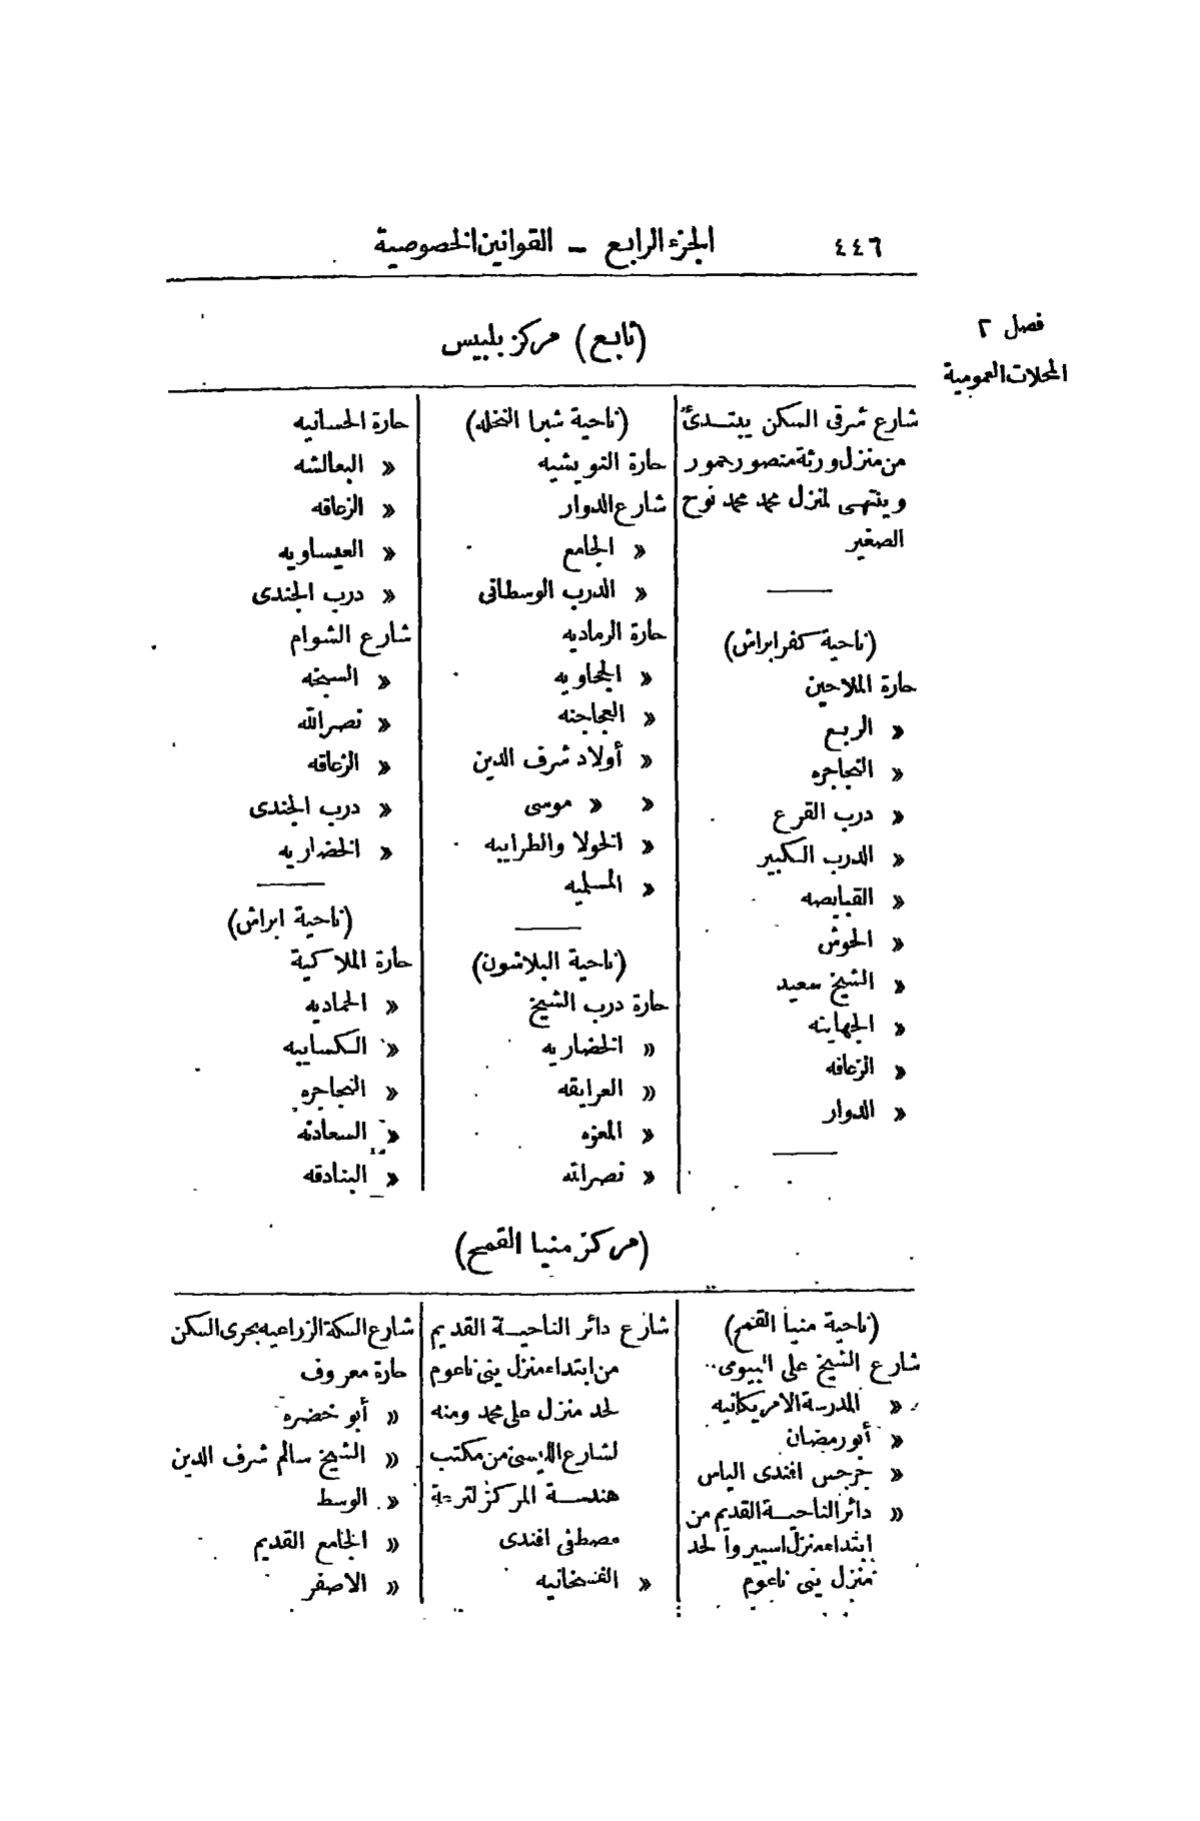 ٤٤٦
الجزء الرابع – القوانين الخصوصية
فصل ٢
المحلات العمومية
(تابع) مركز بلبيس
شارع شرقى السكن يبتدئ
من منزل ورثة منصور حمور
وينتهى لمنزل محمد محمد نوح
الصغير
(ناحية كفر ابراش)
حارة الملاحين
« الربع
« النجاجره
« درب القرع
« الدرب الكبير
« القبايصه
« الحوش
« الشيخ سعيد
« الجهاينه
« الزعاقه
« الدوار
(ناحية شبرا النخله)
حارة النويشيه
شارع الدوار
« الجامع
« الدرب الوسطانى
حارة الرماديه
« الججاويه
« العجاجنه
« أولاد شرف الدين
« « موسى
« الخولا والطرايبه
« المسلميه
(ناحية البلاشون)
حارة درب الشيخ
« الخضاريه
« العرايقه
« المعزه
« نصرالله
حارة الحسانيه
« البعالشه
« الزعاقه
« العيساويه
« درب الجندى
شارع الشوام
« السبخه
« نصرالله
« الزعاقه
« درب الجندى
« الخضاريه
(ناحية ابراش)
حارة الملاكية
« الحماديه
« الكسابيه
« النجاجره
« السعادنه
« البنادقه
(مركز منيا القمح)
(ناحية منيا القمح)
شارع الشيخ على البيومى
« المدرسة الامريكانيه
« أبو رمضان
« جرجس افندى الياس
« دائر الناحية القديم من
ابتداء منزل اسبيرو لحد
منزل ينى ناعوم
شارع دائر الناحية القديم
من ابتداء منزل ينى ناعوم
لحد منزل على محمد ومنه
لشارع من مكتب
هندسة المركز لترعة
مصطفى افندى
« الفسخانيه
شارع السكة الزراعيه بحرى السكن
حارة معروف
« أبو خضره
« الشيخ سالم شرف الدين
« الوسط
« الجامع القديم
« الاصفر